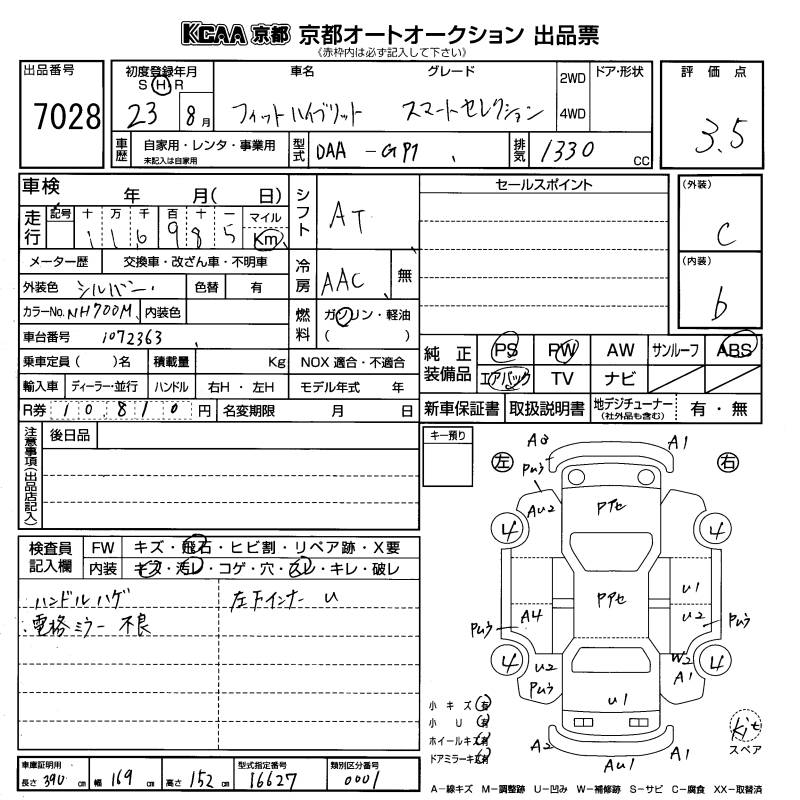 KCAA 京都 京都オートオークション 出品票
《赤枠内は必ず記入して下さい》
出品番号 7028
初度登録年月 S H R 23 8月
車名 フィットハイブリット
グレード スマートセレクション
2WD 4WD
ドア・形状
評価点 3.5
車歴 自家用・レンタ・事業用 未記入は自家用
型式 DAA-GP1
排気 1330 CC
車検 年 月( 日)
シフト AT
セールスポイント
(外装) C
(内装) b
走行 記号 十 万 千 百 十 一 マイル Km
116985
メーター歴 交換車・改ざん車・不明車
冷房 AAC 無
外装色 シルバー 色替 有
カラーNo. NH700M 内装色
燃料 ガソリン・軽油 ( )
車台番号 1072363
純正装備品 PS PW AW サンルーフ ABS
エアバック TV ナビ
乗車定員( )名 積載量 Kg NOX 適合・不適合
輸入車 ディーラー・並行 ハンドル 右H・左H モデル年式 年
新車保証書 取扱説明書 地デジチューナー (社外品も含む) 有・無
R券 10,810円 名変期限 月 日
注意事項(出品店記入) 後日品
キー預り
左 右
A8 A1
Puう
AU2 Pアセ
4 4
検査員記入欄 FW キズ・飛石・ヒビ割・リペア跡・X要
内装 キズ・汚レ・コゲ・穴・スレ・キレ・破レ
ハンドルハゲ 左下インナー U
電格ミラー 不良
Pアセ U1
Puう A4 U2 Puう
4 W2 4
U2 A1
Puう U1
小キズ(有)
小U(有)
ホイールキズ(有)
ドアミラーキズ(有)
A2 AU1 A1
Kit
スペア
車庫証明用 長さ 390 cm 幅 169 cm 高さ 152 cm
型式指定番号 16627
類別区分番号 0001
A−線キズ M−調整跡 U−凹み W−補修跡 S−サビ C−腐食 XX−取替済